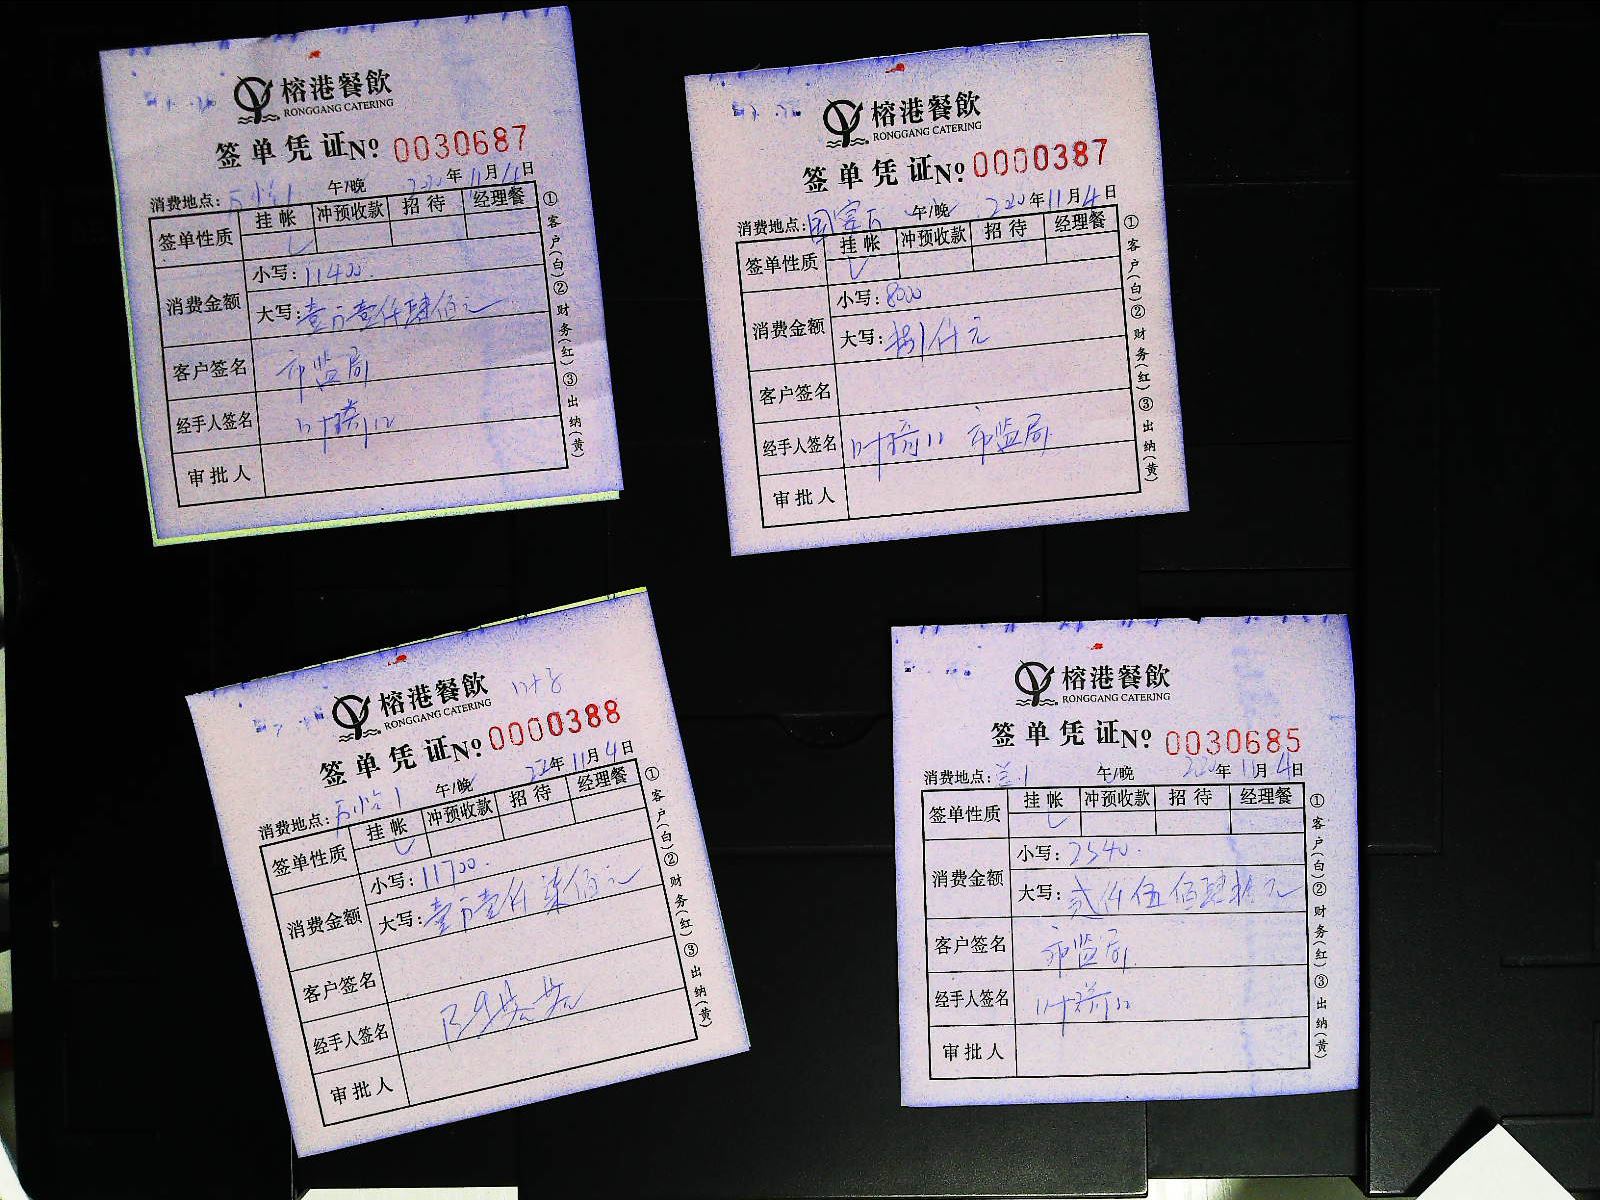 榕港餐飲
RONGGANG CATERING
签单凭证No 0030687
消费地点: 午/晚 2020年11月4日
签单性质 挂帐 冲预收款 招待 经理餐
消费金额 小写:11400.
大写:壹万壹仟肆佰元
客户签名 市监局
经手人签名
审批人
①客户(白)②财务(红)③出纳(黄)
榕港餐飲
RONGGANG CATERING
签单凭证No 0000387
消费地点: 午/晚 2020年11月4日
签单性质 挂帐 冲预收款 招待 经理餐
消费金额 小写:8000
大写:捌仟元
客户签名
经手人签名 市监局
审批人
①客户(白)②财务(红)③出纳(黄)
榕港餐飲
RONGGANG CATERING
签单凭证No 0000388
消费地点: 午/晚 年11月4日
签单性质 挂帐 冲预收款 招待 经理餐
消费金额 小写:11700.
大写:壹万壹仟柒佰元
客户签名
经手人签名
审批人
①客户(白)②财务(红)③出纳(黄)
榕港餐飲
RONGGANG CATERING
签单凭证No 0030685
消费地点: 午/晚 2020年11月4日
签单性质 挂帐 冲预收款 招待 经理餐
消费金额 小写:2540.
大写:贰仟伍佰肆拾元
客户签名 市监局
经手人签名
审批人
①客户(白)②财务(红)③出纳(黄)